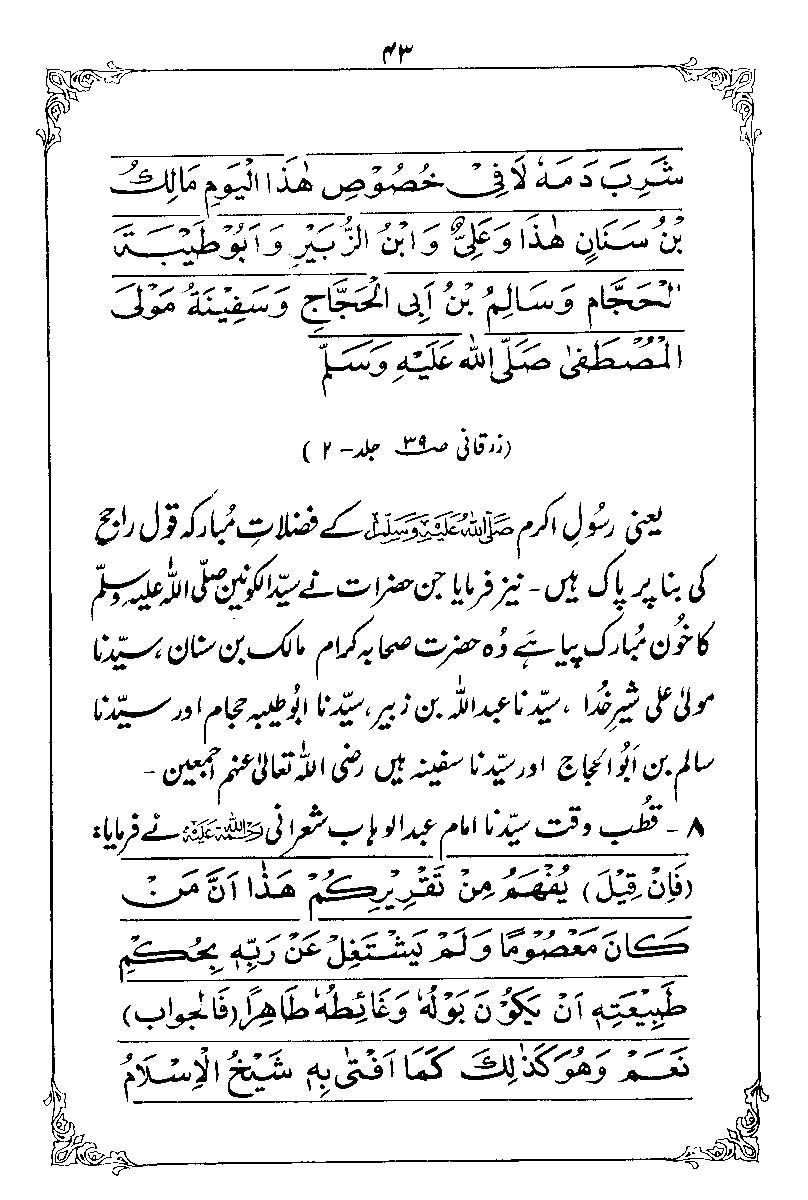 ۴۳
شَرِبَ دَمَهٗ لَا فِیْ خُصُوْصِ هٰذَا الْیَوْمِ مَالِكُ
بْنُ سَنَانٍ هٰذَا وَعَلِیٌّ وَابْنُ الزُّبَیْرِ وَاَبُوْطَیْبَةَ
الْحَجَّامِ وَسَالِمُ بْنُ اَبِی الْحَجَّاجِ وَسَفِیْنَةُ مَوْلَی
الْمُصْطَفٰی صَلَّی اللهُ عَلَیْهِ وَسَلَّمَ
(زرقانی ص۳۹ جلد-۲)
یعنی رسُولِ اکرم صَلَّی اللہُ عَلَیْہِ وَسَلَّمَ کے فضلاتِ مُبارکہ قول راجح
کی بنا پر پاک ہیں - نیز فرمایا جن حضرات نے سیّدالکونین صلّی اللہ علیہ وسلّم
کا خُون مُبارک پیا ہے وُہ حضرت صحابہ کرام مالک بن سنان ، سیّدنا
مولیٰ علی شیرِ خُدا ، سیّدنا عبداللہ بن زبیر، سیّدنا ابوطیبہ حجام اور سیّدنا
سالم بن ابُوالحجاج اور سیّدنا سفینہ ہیں رضی اللہ تعالیٰ عنہم اجمعین -
۸ - قُطب وقت سیّدنا امام عبدالوہاب شعرانی رَحْمَۃُ اللہِ عَلَیْہِ نے فرمایا:
(فَاِنْ قِیْلَ) یُفْهَمُ مِنْ تَقْرِیْرِكُمْ هٰذَا اَنَّ مَنْ
كَانَ مَعْصُوْمًا وَلَمْ یَشْتَغِلْ عَنْ رَبِّهٖ بِحُكْمِ
طَبِیْعَتِهٖ اَنْ یَكُوْنَ بَوْلُهٗ وَغَائِطُهٗ طَاهِرًا (فَالجواب)
نَعَمْ وَهُوَ كَذٰلِكَ كَمَا اَفْتٰی بِهٖ شَیْخُ الْاِسْلَامُ